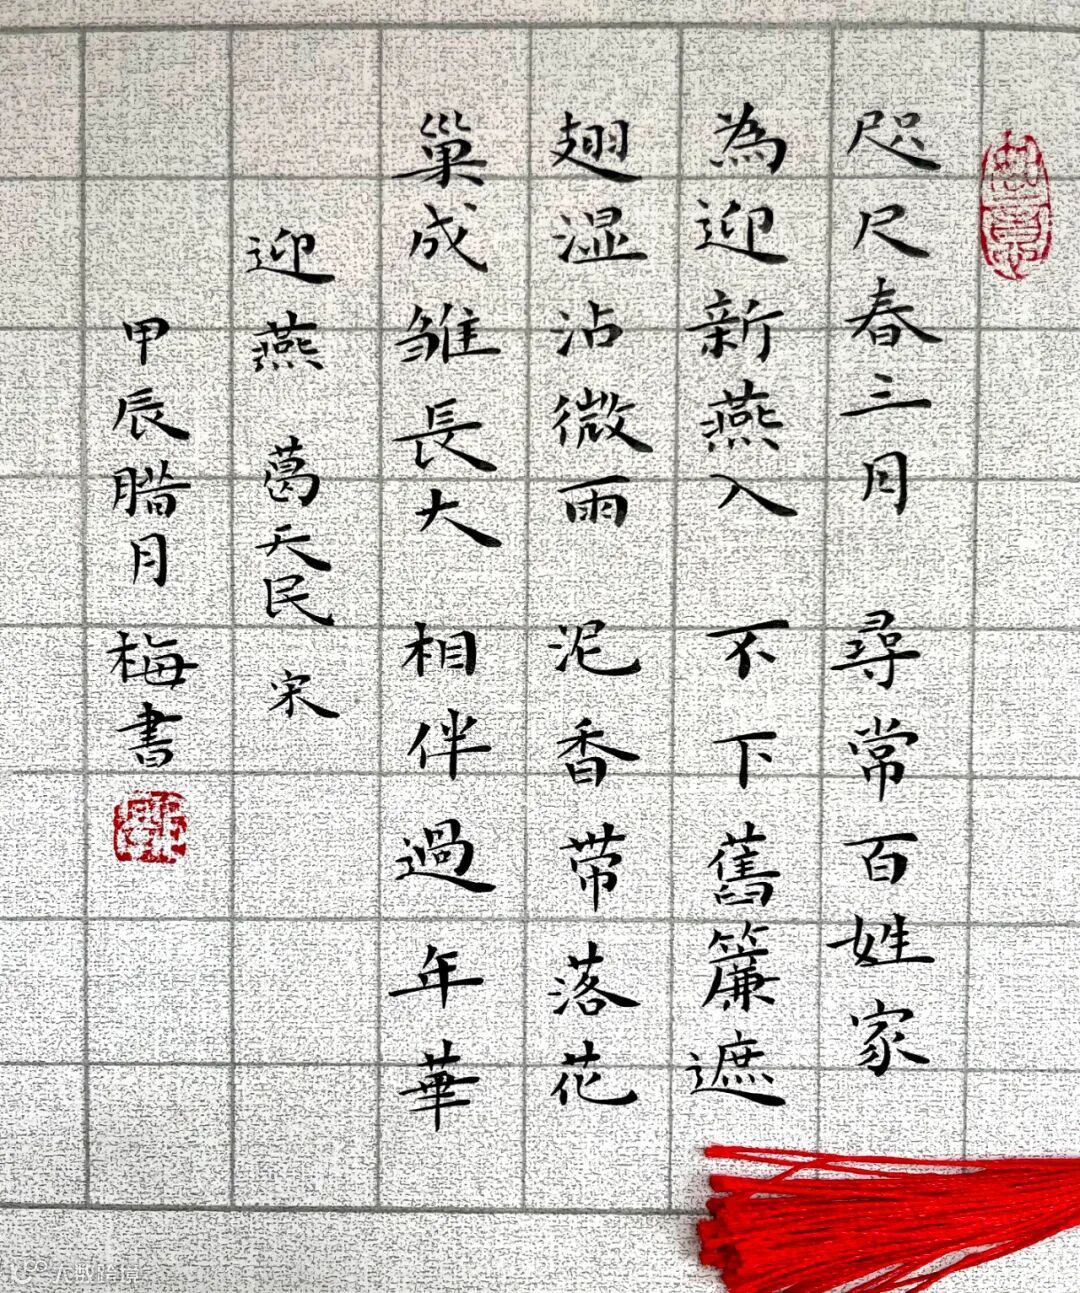 咫尺春三月 尋常百姓家
為迎新燕入 不下舊簾遮
翅湿沾微雨 泥香带落花
巢成雏長大 相伴過年華
迎燕 葛天民 宋
甲辰腊月梅書
大数跨境